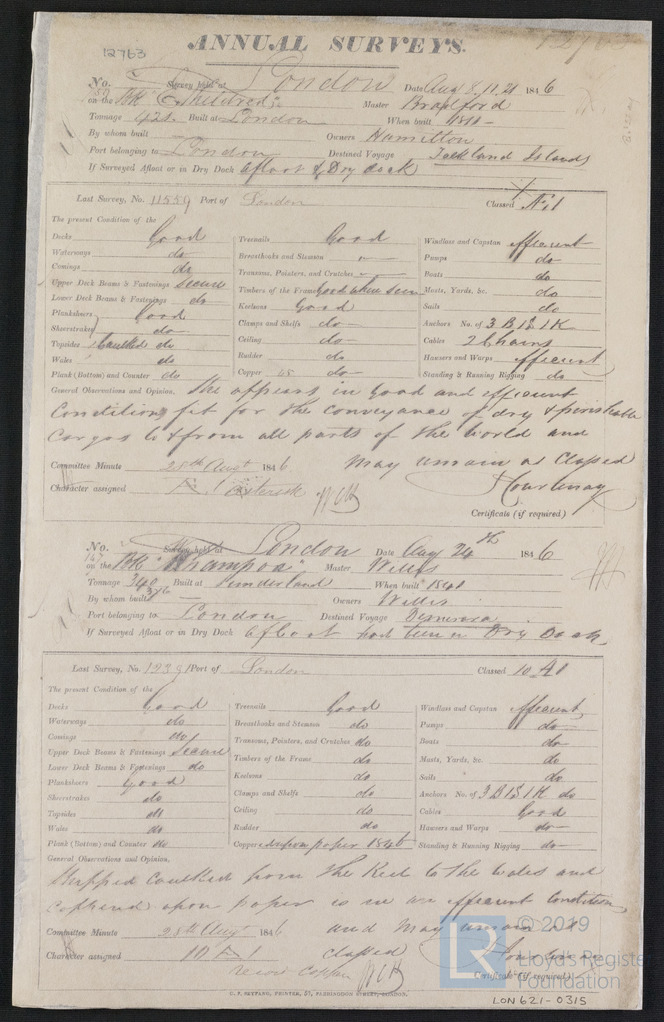 12763
ANNUAL SURVEYS.
No. Survey held at London Date Aug 8, 11, 21 1846
on the BK Master Bradford
Tonnage 421 Built at London When built
By whom built Owners Hamilton
Port belonging to London Destined Voyage Falkland Islands
If Surveyed Afloat or in Dry Dock Afloat & Dry dock
Last Survey, No. 11559 Port of London Classed
The present Condition of the
Decks Good Treenails Good Windlass and Capstan efficient
Waterways do Breasthooks and Stemson Pumps do
Comings do Transoms, Pointers, and Crutches Boats do
Upper Deck Beams & Fastenings Secure Timbers of the Frame Good when seen Masts, Yards, &c. do
Lower Deck Beams & Fastenings do Keelsons Good Sails do
Planksheers Good Clamps and Shelfs do Anchors No. of 3 B 1 S 1 K
Sheerstrakes do Ceiling do Cables 2 Chains
Topsides Caulked do Rudder do Hawsers and Warps efficient
Wales do Copper do Standing & Running Rigging do
Plank (Bottom) and Counter do
General Observations and Opinion. She appears in good and efficient
Condition fit for the conveyance of dry & perishable
Cargos to & from all parts of the world and
may remain as Classed
Committee Minute 28th Augt 1846
Character assigned Asterisk
Courtenay
Certificate (if required)
No. Survey held at London Date Aug 24th 1846
on the BK Whampoa Master Willis
Tonnage 340 Built at Sunderland When built 1840
By whom built Owners Willis
Port belonging to London Destined Voyage Demerara
If Surveyed Afloat or in Dry Dock Afloat had been in Dry Dock
Last Survey, No. Port of London Classed 10 A1
The present Condition of the
Decks Good Treenails Good Windlass and Capstan efficient
Waterways do Breasthooks and Stemson do Pumps do
Comings do Transoms, Pointers, and Crutches do Boats do
Upper Deck Beams & Fastenings Secure Timbers of the Frame do Masts, Yards, &c. do
Lower Deck Beams & Fastenings do Keelsons do Sails do
Planksheers Good Clamps and Shelfs do Anchors No. of 3 B 1 S 1 K do
Sheerstrakes do Ceiling do Cables Good
Topsides do Rudder do Hawsers and Warps do
Wales do Copper upon paper 1846 Standing & Running Rigging do
Plank (Bottom) and Counter do
General Observations and Opinion.
Stripped caulked from the Keel to the Wales and
coppered upon paper is in an efficient Condition
and may remain as
Committee Minute 28th Augt 1846
classed
Character assigned 10 A 1
Certificate (if required)
U. F. SEYFANG, PRINTER, 57, FARRINGDON STREET, LONDON.
© 2019
LR
Lloyd's Register
Foundation
LON 621-0315